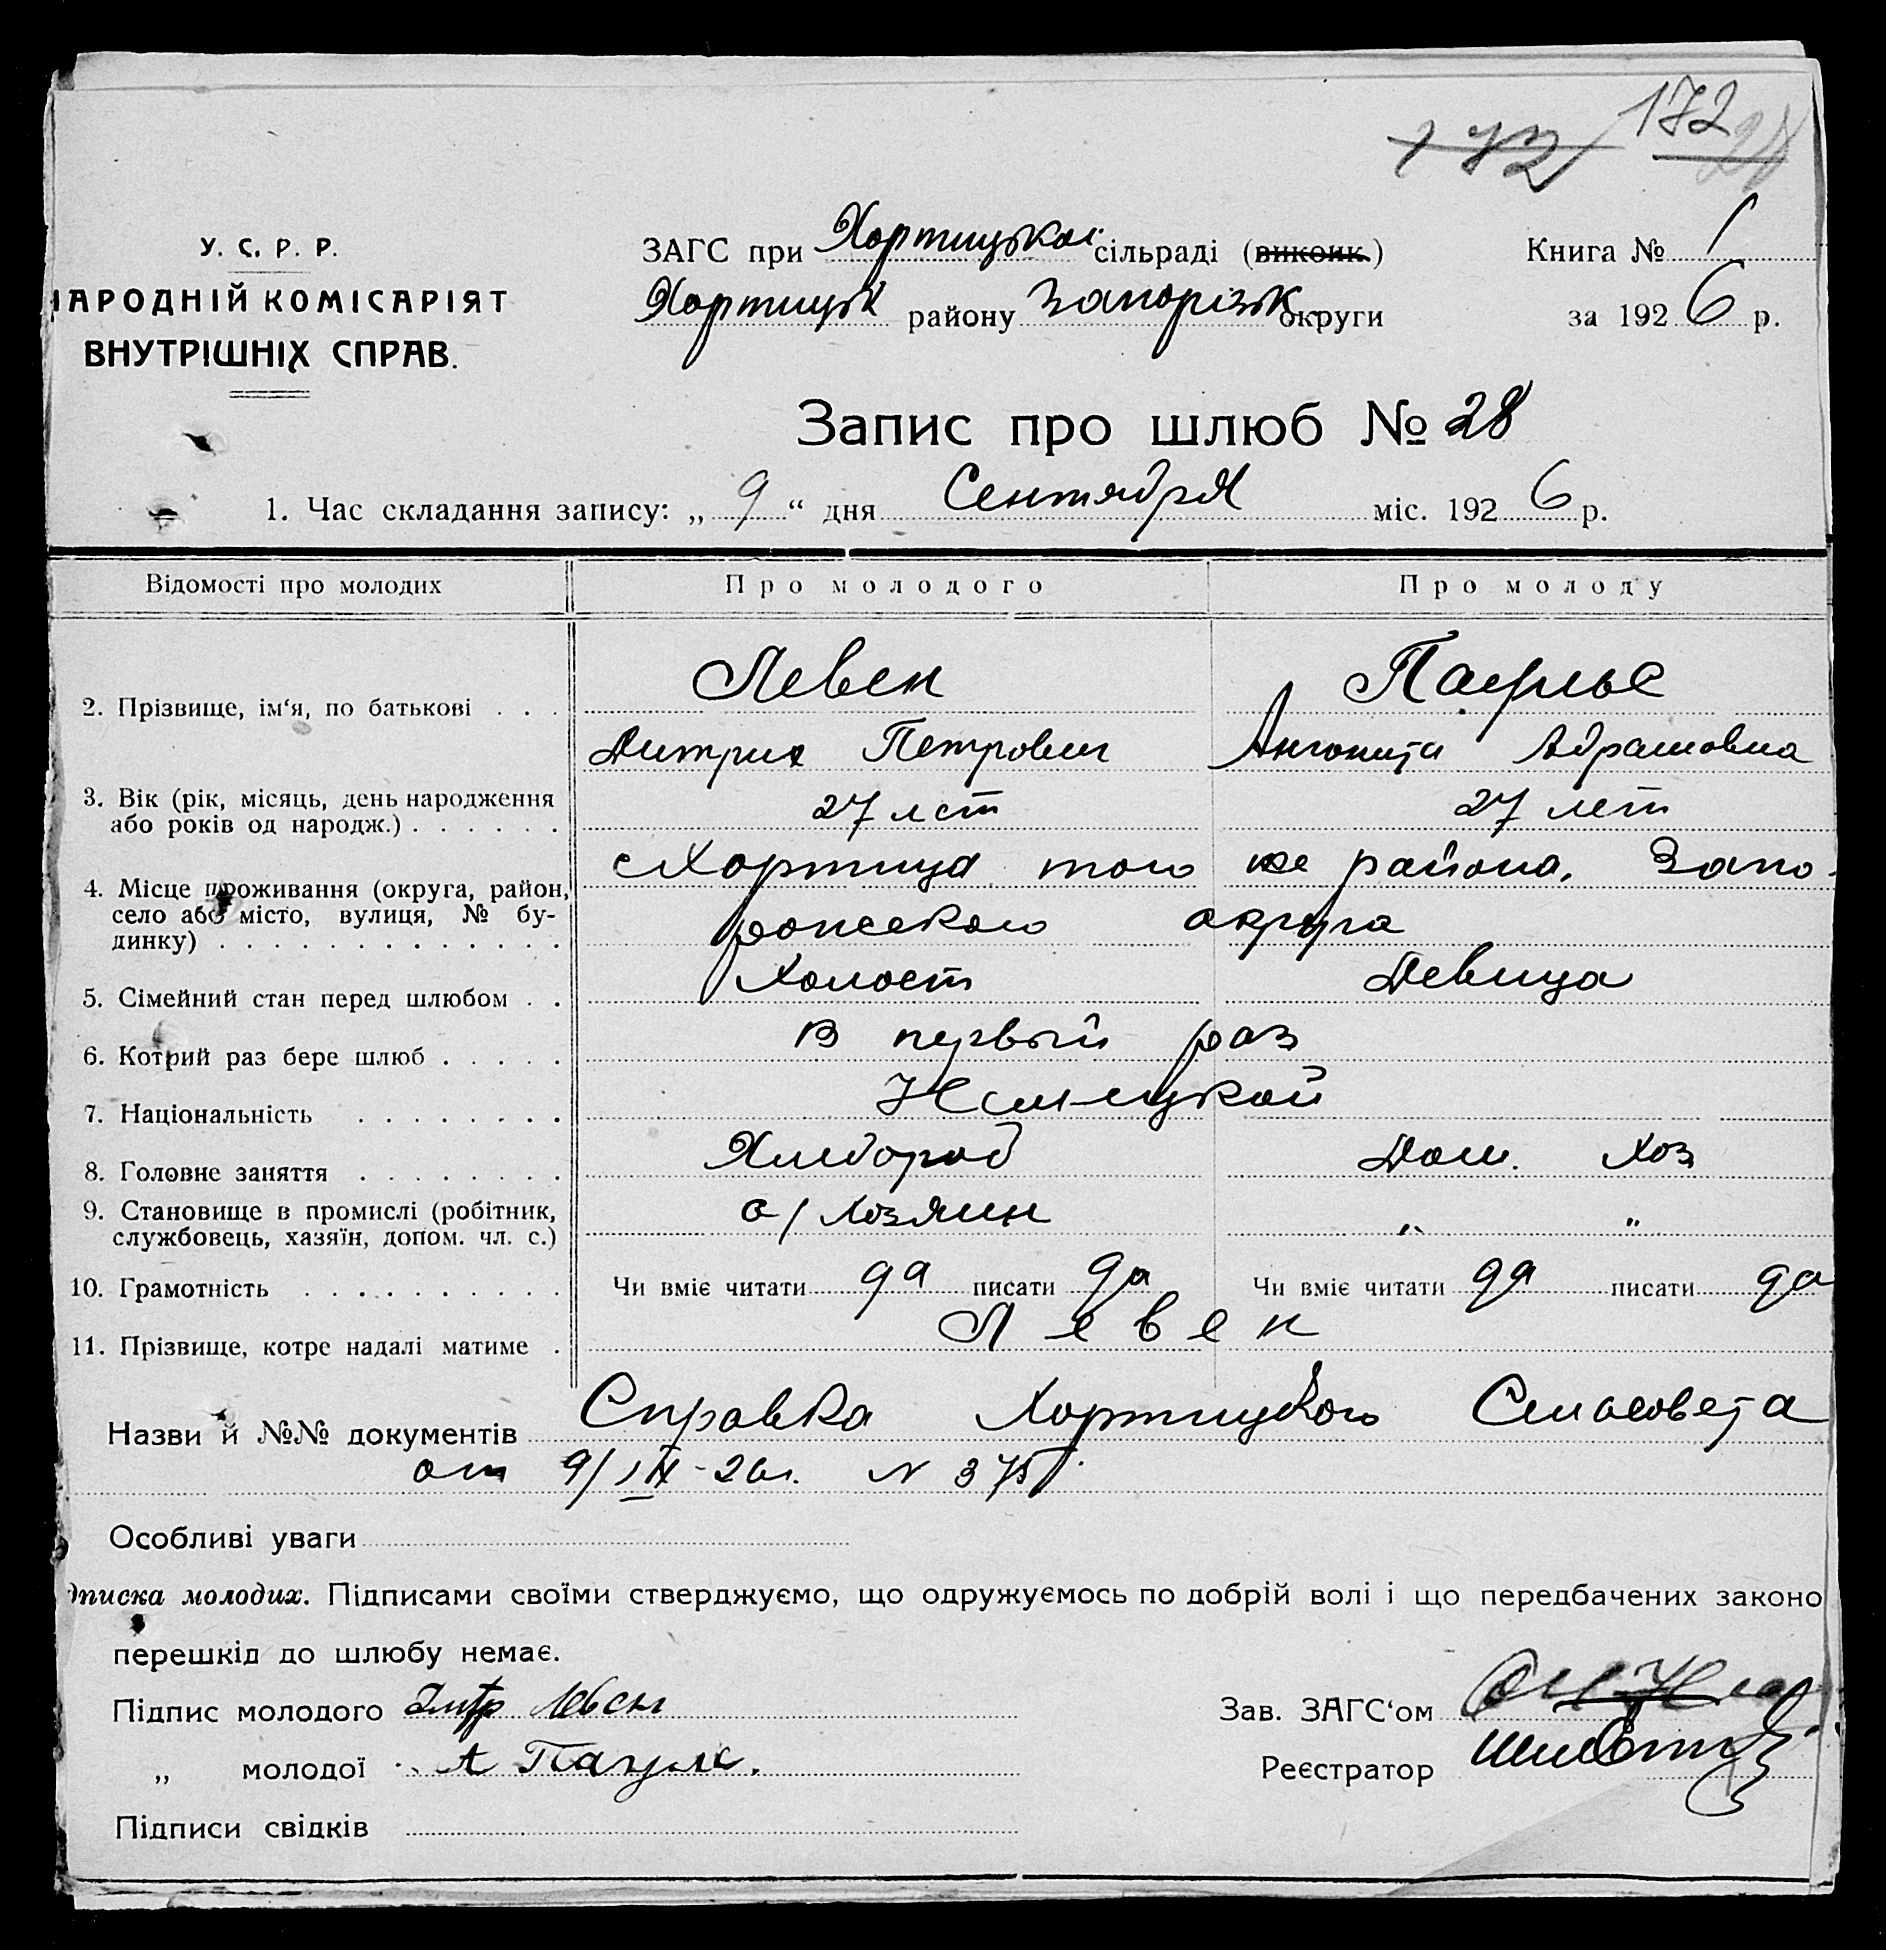 172 172 28
У. С. Р. Р.
НАРОДНІЙ КОМІСАРІЯТ
ВНУТРІШНІХ СПРАВ.
ЗАГС при Хортицькой сільраді (викоик.) Книга № 1
Хортицьк району Запорізьк. округи за 1926 р.
Запис про шлюб № 28
1. Час складання запису: „ 9 “ дня Сентября міс. 1926 р.
Відомості про молодих Про молодого Про молоду
2. Прізвище, ім‘я, по батькові . . . Левен
Дитрих Петрович Абрамовна
3. Вік (рік, місяць, день народження
або років од народж.) . . . . . . 27 лет 27 лет
4. Місце проживання (округа, район,
село або місто, вулиця, № бу-
динку) . . . . . . . . . . . . . . с Хортица того же района, Запо-
рожского округа
5. Сімейний стан перед шлюбом . . Холост Девица
6. Котрий раз бере шлюб . . . . . В первый раз
7. Національність . . . . . . . . Немецкой
8. Головне заняття . . . . . . . . Хлебороб Дом. хоз
9. Становище в промислі (робітник,
службовець, хазяїн, допом. чл. с.) с/хозяин „ “
10. Грамотність . . . . . . . . . . Чи вміє читати да писати да Чи вміє читати да писати да
11. Прізвище, котре надалі матиме . Левен
Назви й №№ документів Справка Хортицкого Сельсовета
от 9/IX-26г. N 375
Особливі уваги
дписка молодих. Підписами своїми стверджуємо, що одружуємось по добрій волі і що передбачених законо
перешкід до шлюбу немає.
Підпис молодого Дитр Левен Зав. ЗАГС‘ом
„ молодої А Реєстратор
Підписи свідків